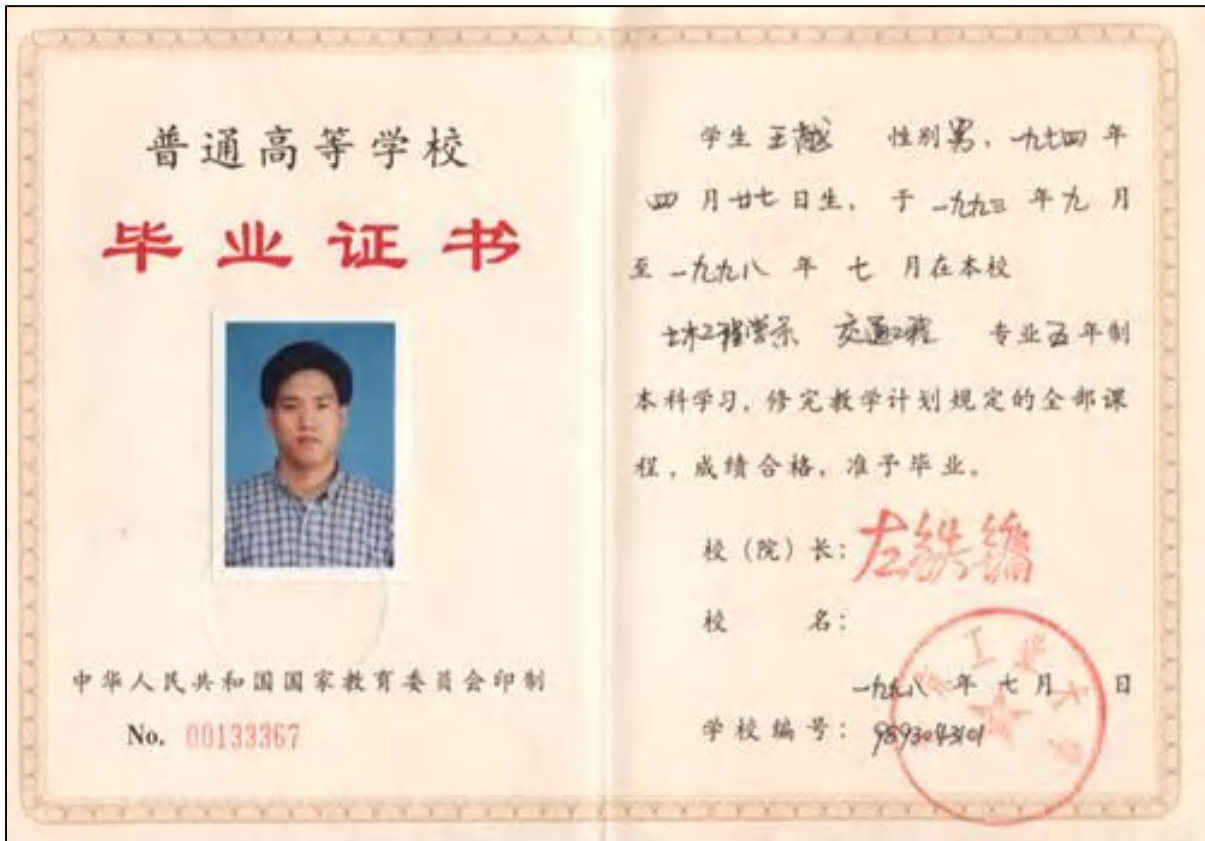 普通高等学校
毕业证书
中华人民共和国国家教育委员会印制
No. 00133367
学生 王越 性别男、一九七四年
四月廿七日生，于一九九三年九月
至一九九八年七月在本校
土木工程学系 交通工程 专业五年制
本科学习，修完教学计划规定的全部课
程，成绩合格，准予毕业。
校（院）长：左铁镛
校名：
一九九八年七月 日
学校编号：9893043101
工业大学